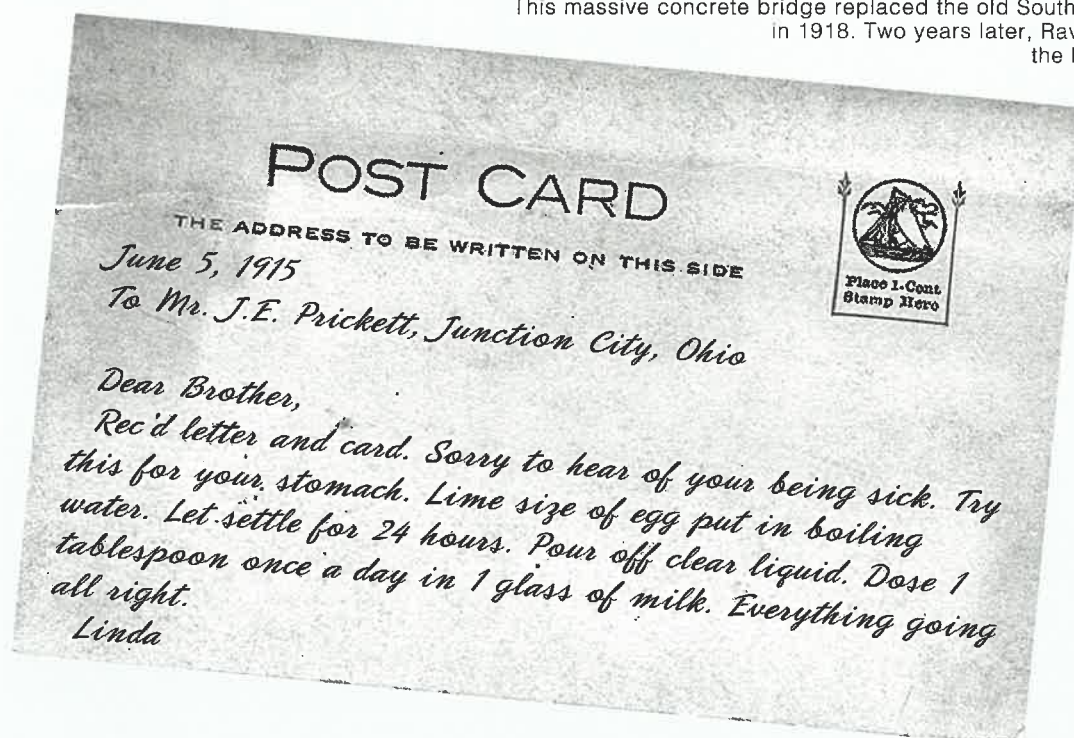 This massive concrete bridge replaced the old South
in 1918. Two years later,
the
POST CARD
THE ADDRESS TO BE WRITTEN ON THIS SIDE
Place 1-Cent
Stamp Here
June 5, 1915
To Mr. J.E. Prickett, Junction City, Ohio
Dear Brother,
Rec'd letter and card. Sorry to hear of your being sick. Try
this for your stomach. Lime size of egg put in boiling
water. Let settle for 24 hours. Pour off clear liquid. Dose 1
tablespoon once a day in 1 glass of milk. Everything going
all right.
Linda